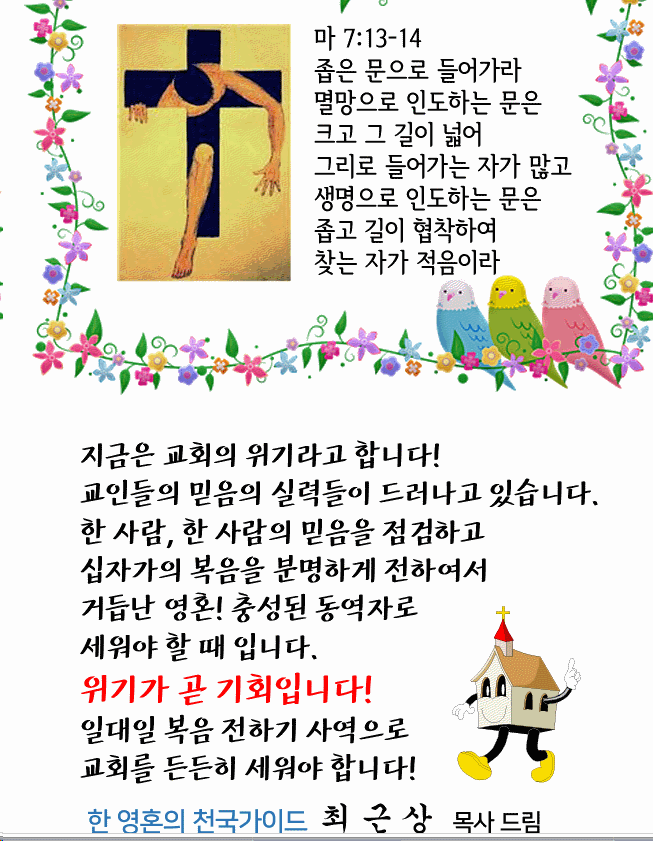 마 7:13-14
좁은 문으로 들어가라
멸망으로 인도하는 문은
크고 그 길이 넓어
그리로 들어가는 자가 많고
생명으로 인도하는 문은
좁고 길이 협착하여
찾는 자가 적음이라
지금은 교회의 위기라고 합니다!
교인들의 믿음의 실력들이 드러나고 있습니다.
한 사람, 한 사람의 믿음을 점검하고
십자가의 복음을 분명하게 전하여서
거듭난 영혼! 충성된 동역자로
세워야 할 때 입니다.
위기가 곧 기회입니다!
일대일 복음 전하기 사역으로
교회를 든든히 세워야 합니다!
한 영혼의 천국가이드 최 근 상 목사 드림